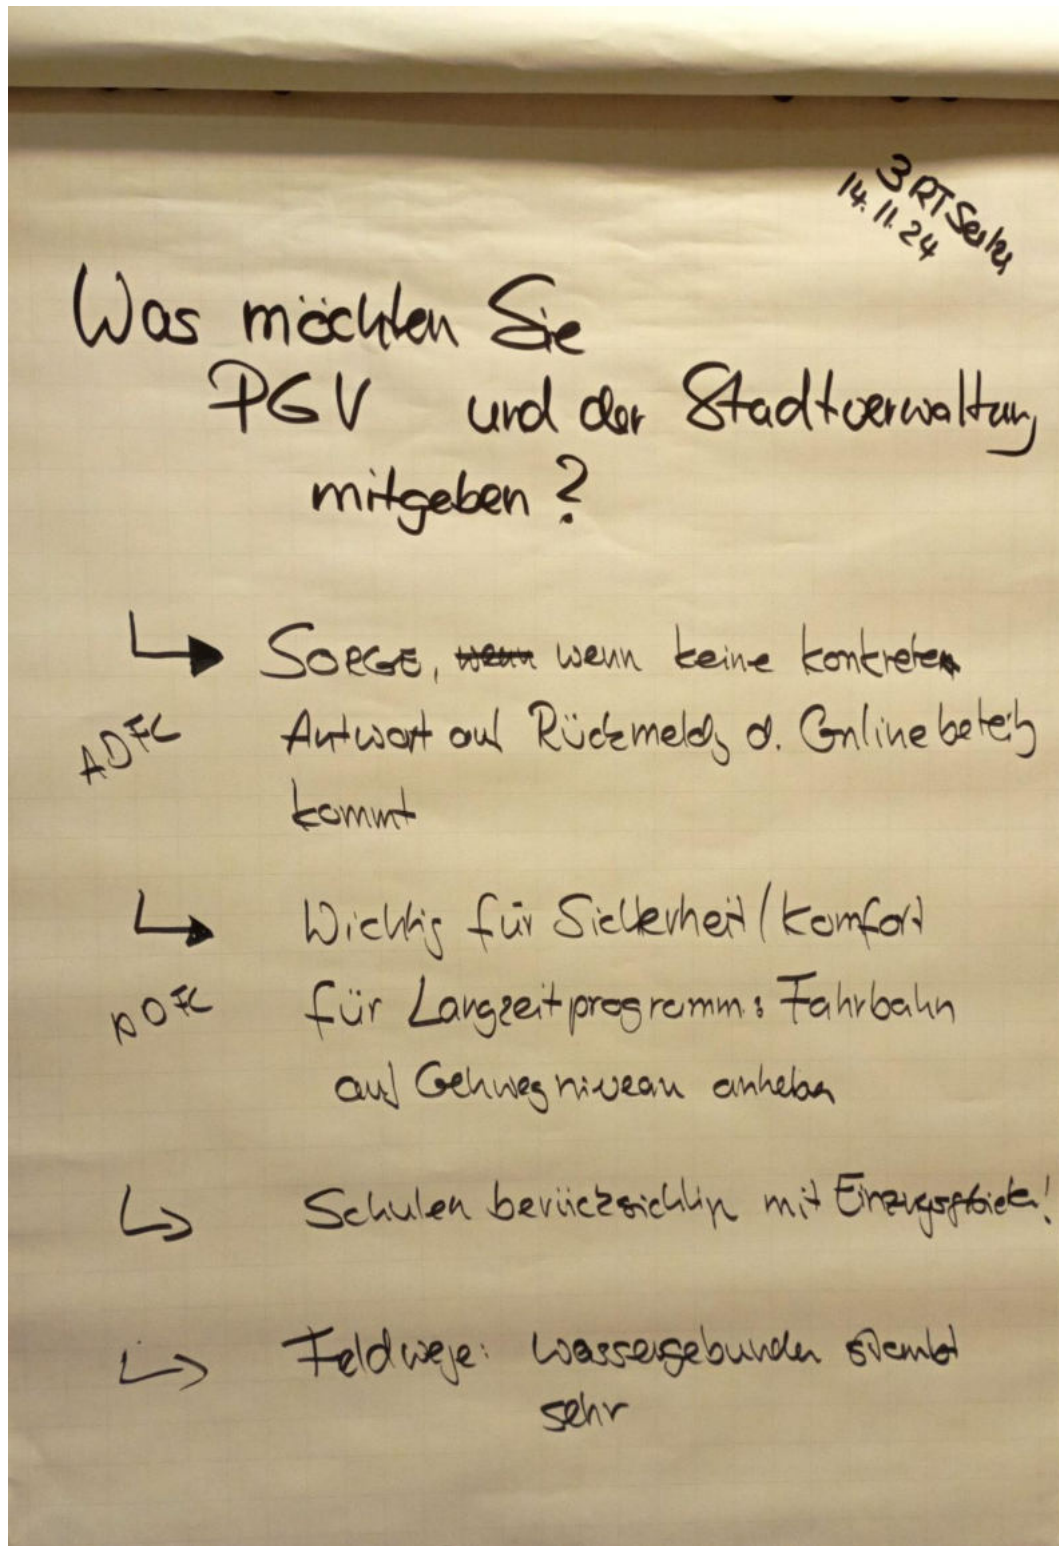 3 RT
14.11.24
Was möchten Sie
PGV und der Stadtverwaltung
mitgeben?
SORGE, wenn wenn keine konkrete
ADFC
Antwort auf Rückmeldg d. Onlinebeteilg
kommt
Wichtig für Sicherheit/Komfort
ADFC
für Langzeitprogramm: Fahrbahn
auf Gehwegniveau anheben
Schulen berücksichtign mit Einzugsgebieten!
Feldwege: wassergebunden staubt
sehr